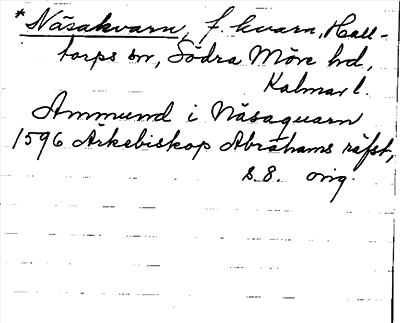 *Näsakvarn, f. kvarn, Hall-
torps sn, Södra Möre hd,
Kalmar l.
Ammund i Näsaquarn
1596 Ärkebiskop Abrahams räfst,
s. 8. orig.